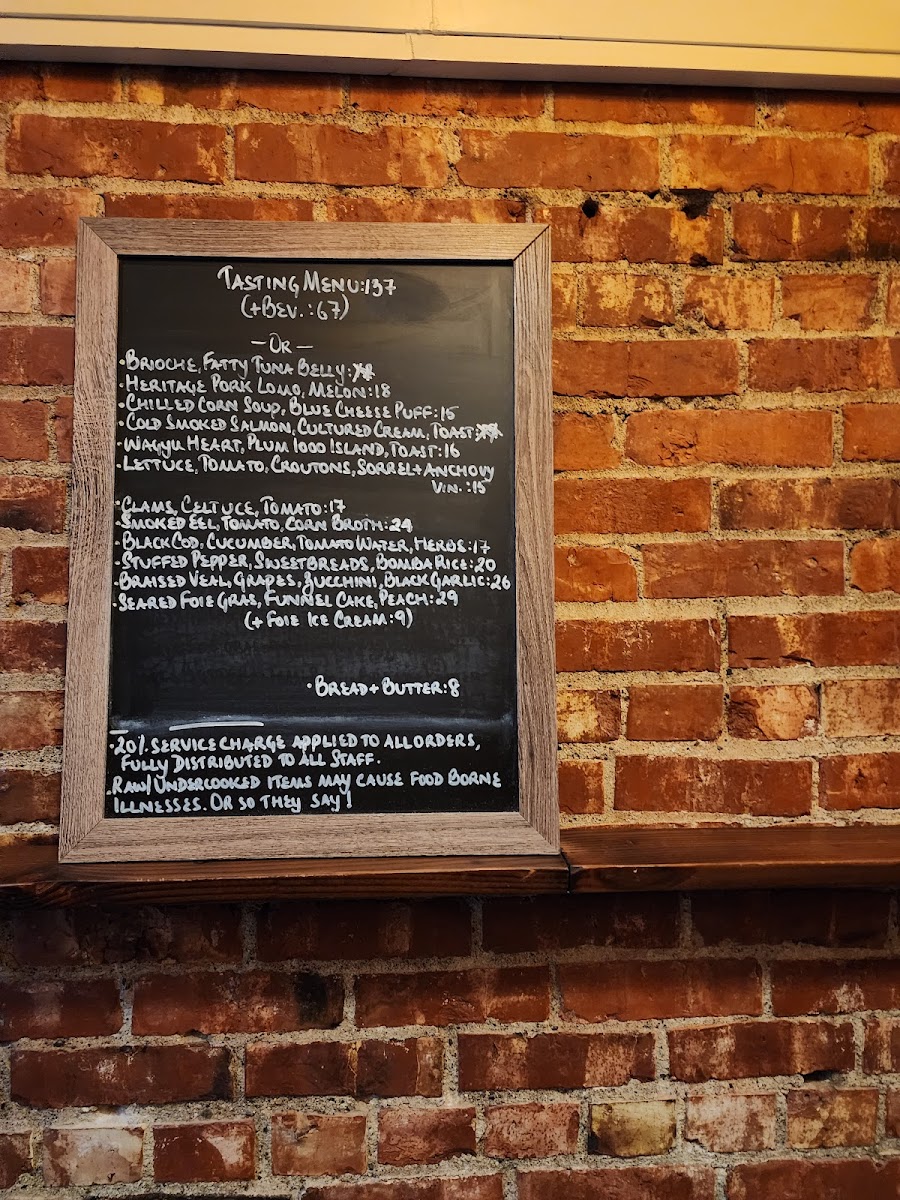 TASTING MENU:137
(+BEV.:67)
—OR—
·BRIOCHE, FATTY TUNA BELLY:
·HERITAGE PORK LOMO, MELON:18
·CHILLED CORN SOUP, BLUE CHEESE PUFF:15
·COLD SMOKED SALMON, CULTURED CREAM, TOAST:
·WAGYU HEART, PLUM 1000 ISLAND, TOAST:16
·LETTUCE, TOMATO, CROUTONS, SORREL+ANCHOVY
VIN.:15
·CLAMS, CELTUCE, TOMATO:17
·SMOKED EEL, TOMATO, CORN BROTH:24
·BLACK COD, CUCUMBER, TOMATO WATER, HERBS:17
·STUFFED PEPPER, SWEETBREADS, BOMBA RICE:20
·BRAISED VEAL, GRAPES, ZUCCHINI, BLACK GARLIC:26
·SEARED FOIE GRAS, FUNNEL CAKE, PEACH:29
(+ FOIE ICE CREAM:9)
·BREAD+BUTTER:8
·20% SERVICE CHARGE APPLIED TO ALL ORDERS,
FULLY DISTRIBUTED TO ALL STAFF.
·RAW/UNDERCOOKED ITEMS MAY CAUSE FOOD BORNE
ILLNESSES. OR SO THEY SAY!